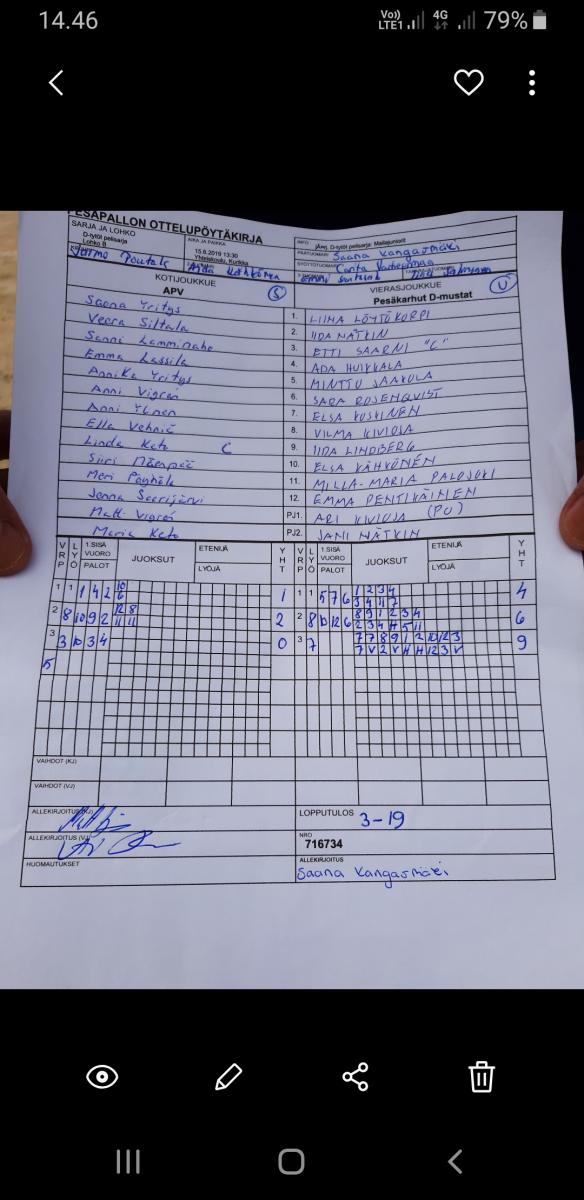 14.46
Vo) LTE1 4G 79%
PESÄPALLON OTTELUPÖYTÄKIRJA
SARJA JA LOHKO
D-tytöt pelisarja
Lohko B
AIKA JA PAIKKA
15.6.2019 13:30
Yhteiskoulu, Kurikka
INFO
D-tytöt pelisarja: Mailajuniorit
PÄÄTUOMARI
Saana Kangasmäki
SYÖTTÖTUOMARI
Jarmo
KOTIJOUKKUE
APV
S
VIERASJOUKKUE
Pesäkarhut D-mustat
U
Saana Yritys 1. LIINA LÖYTÖKORPI
Veera Siltala 2. IIDA NÄTKIN
Sanni Lamminaho 3. ETTI SAARNI "C"
Emma Lassila 4. ADA HUIKKALA
Annika Yritys 5. MINTTU JAAKOLA
Anni Vigren 6. SARA ROSENQVIST
Anni Ylinen 7. ELSA KOSKINEN
Ella Vehniä 8. VILMA KIVIOJA
Linda Keto C 9. IIDA LINDBERG
Siiri Mäenpää 10. ELSA KÄHKÖNEN
Meri Pöyhälä 11. MILLA-MARIA PALOJOKI
Jenna Seerijärvi 12. EMMA PENTIKÄINEN
Matt Vigren PJ1. ARI KIVIOJA (PU)
Maria Keto PJ2. JANI NÄTKIN
VRP LYÖ 1.SISÄ VUORO PALOT JUOKSUT ETENIJÄ LYÖJÄ YHT VRP LYÖ 1.SISÄ VUORO PALOT JUOKSUT ETENIJÄ LYÖJÄ YHT
1 1 1 4 2 10 1 1 1 5 7 6 1 2 3 4 4
6 3 4 11 7
2 8 10 9 2 12 8 2 2 8 10 12 6 8 9 1 2 3 4 6
11 11 2 3 4 H 5 11
3 3 10 3 4 0 3 7 7 7 8 9 1 2 10 12 3 9
7 V 2 V H H 12 3 V
5
VAIHDOT (KJ)
VAIHDOT (VJ)
ALLEKIRJOITUS (KJ)
LOPPUTULOS 3-19
ALLEKIRJOITUS (VJ)
NRO
716734
HUOMAUTUKSET
ALLEKIRJOITUS
Saana Kangasmäki